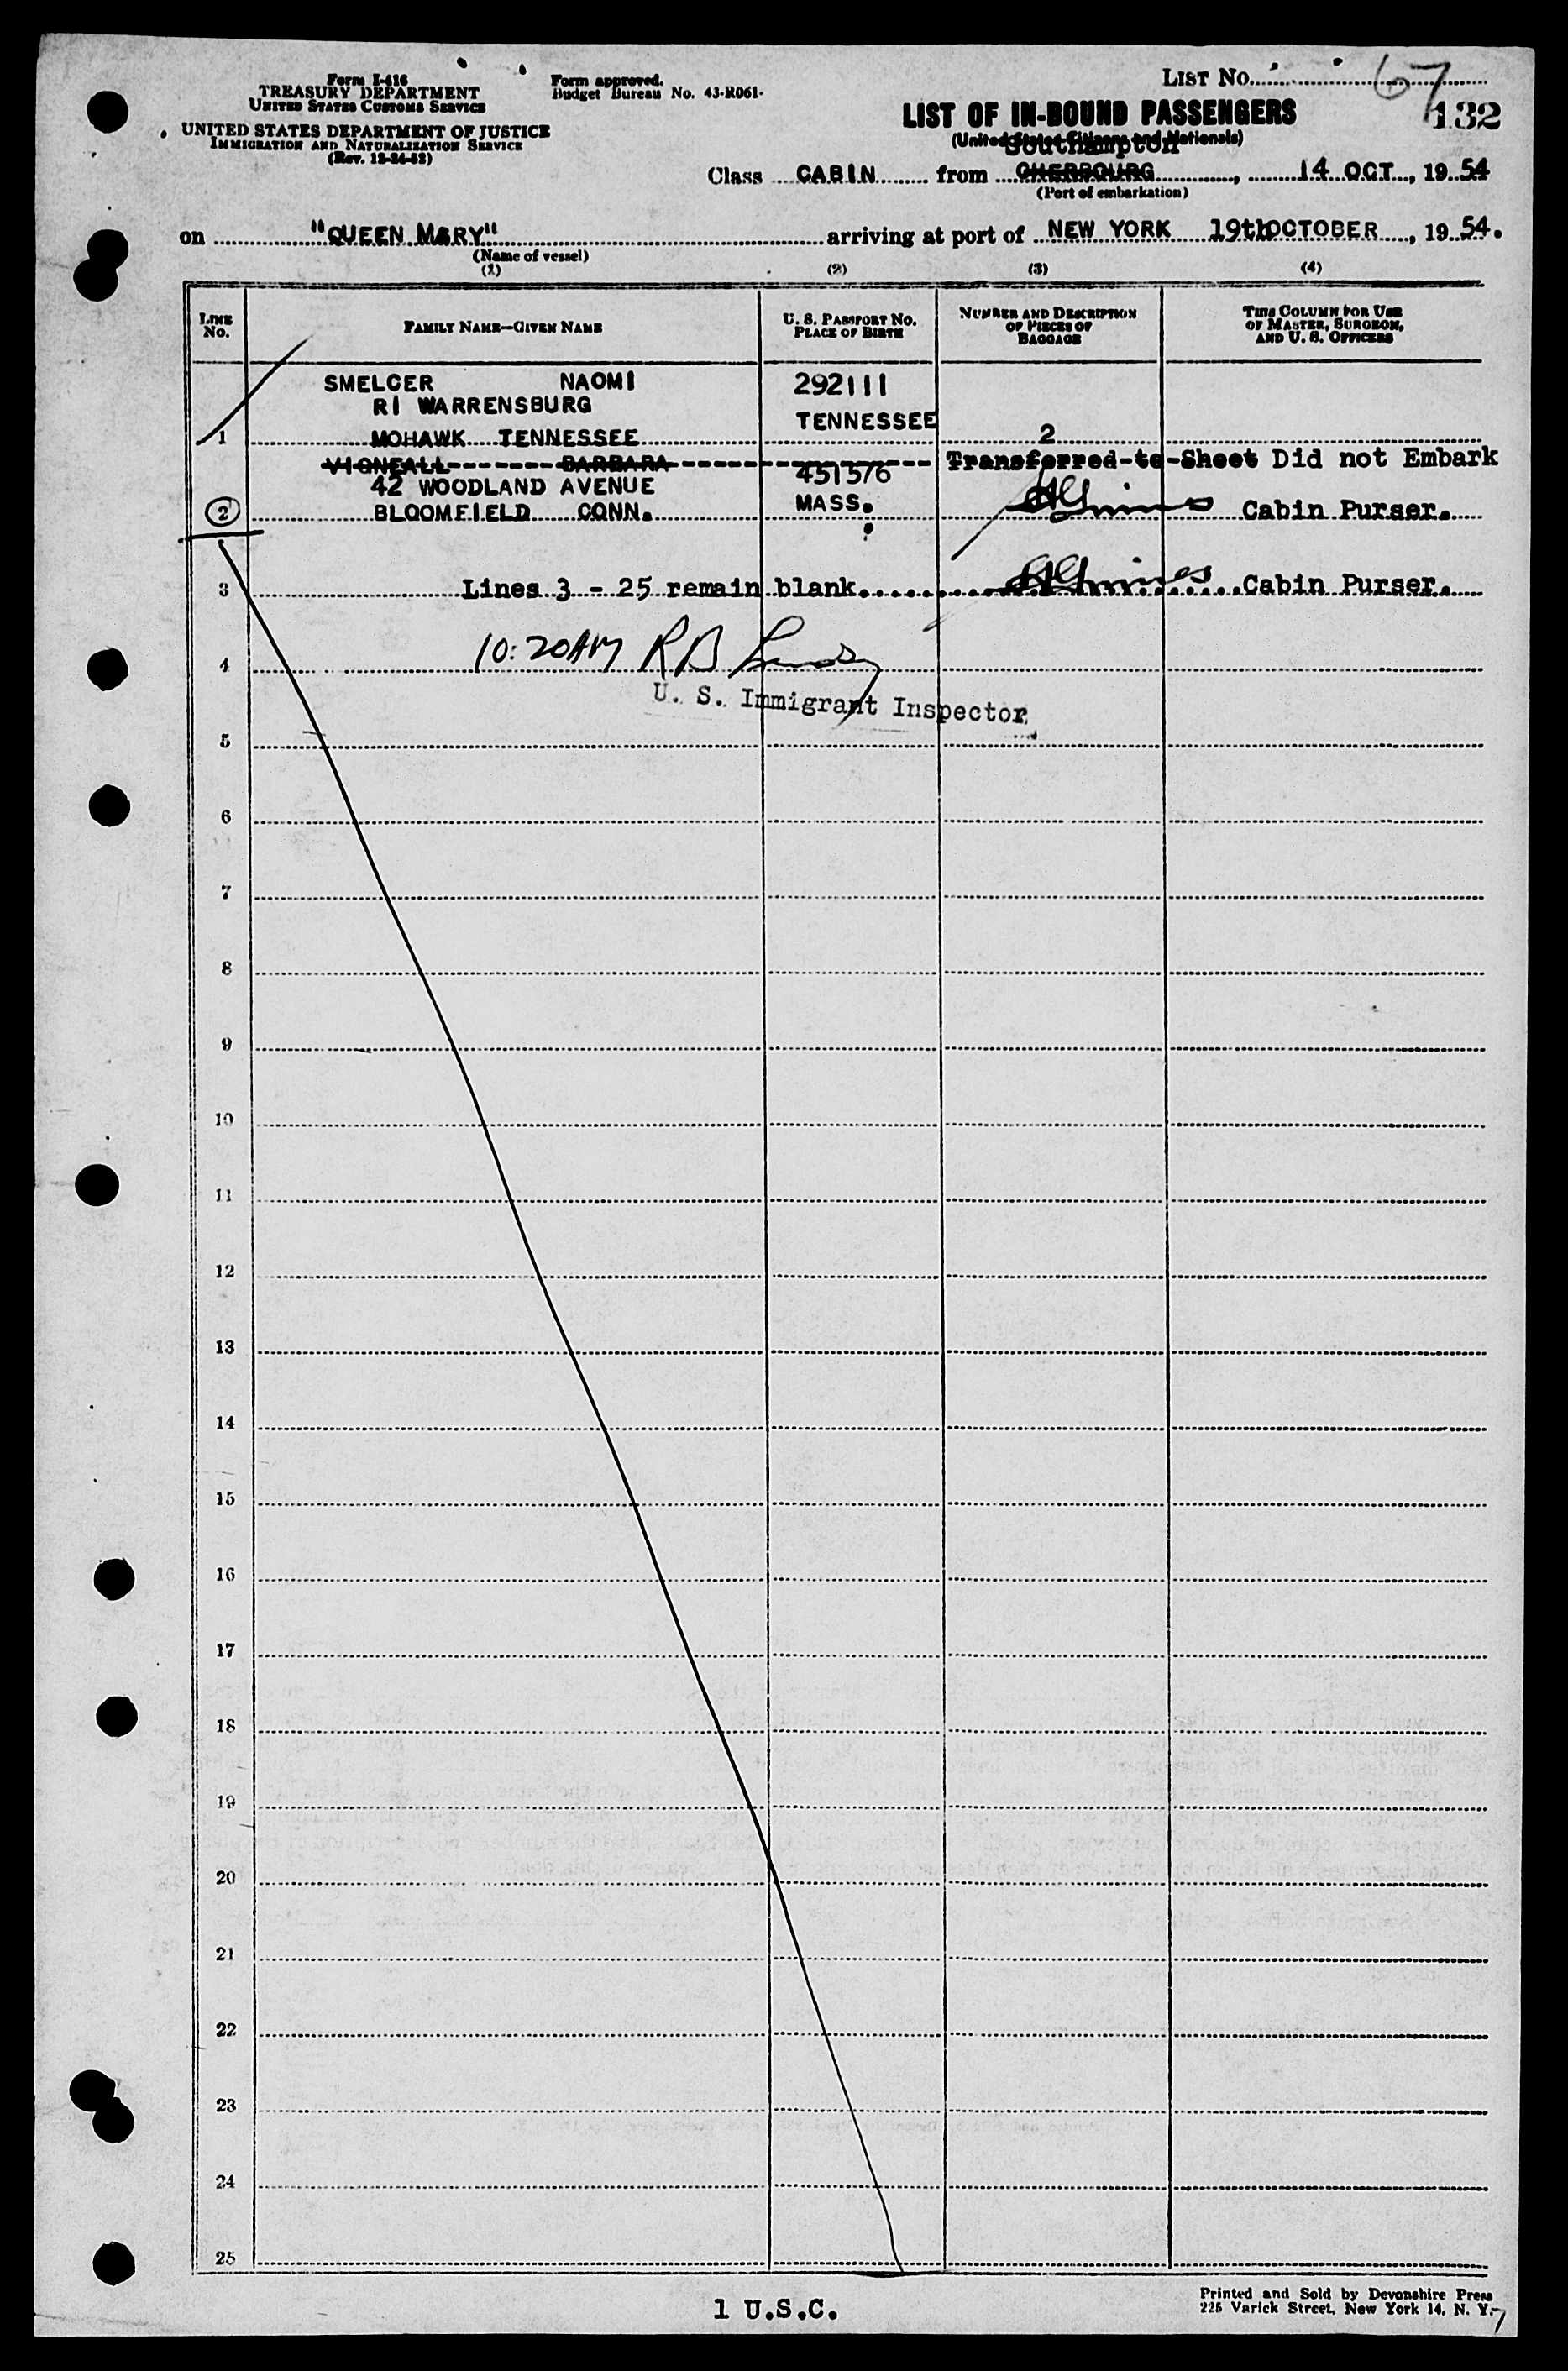 Form I-416
TREASURY DEPARTMENT
UNITED STATES CUSTOMS SERVICE
UNITED STATES DEPARTMENT OF JUSTICE
IMMIGRATION AND NATURALIZATION SERVICE
(Rev. 12-24-52)
Form approved.
Budget Bureau No. 43-R061.
LIST No. 67
132
LIST OF IN-BOUND PASSENGERS
(United States Citizens and Nationals)
Southampton
Class CABIN from CHERBOURG, 14 OCT., 1954
(Port of embarkation)
on "QUEEN MARY" arriving at port of NEW YORK 19th OCTOBER, 1954.
(Name of vessel)
(1) (2) (3) (4)
LINE No.
FAMILY NAME—GIVEN NAME
U. S. PASSPORT NO.
PLACE OF BIRTH
NUMBER AND DESCRIPTION
OF PIECES OF
BAGGAGE
THIS COLUMN FOR USE
OF MASTER, SURGEON,
AND U. S. OFFICERS
SMELCER NAOMI 292111
R1 WARRENSBURG
TENNESSEE
1 MOHAWK TENNESSEE 2
VIGNEALL BARBARA 451576 Transferred-to-Sheet Did not Embark
42 WOODLAND AVENUE
2 BLOOMFIELD CONN. MASS. Cabin Purser.
3 Lines 3 - 25 remain blank. Cabin Purser.
4 10:20AM R B
U. S. Immigrant Inspector
5
6
7
8
9
10
11
12
13
14
15
16
17
18
19
20
21
22
23
24
25
1 U.S.C.
Printed and Sold by Devonshire Press
225 Varick Street, New York 14, N. Y.